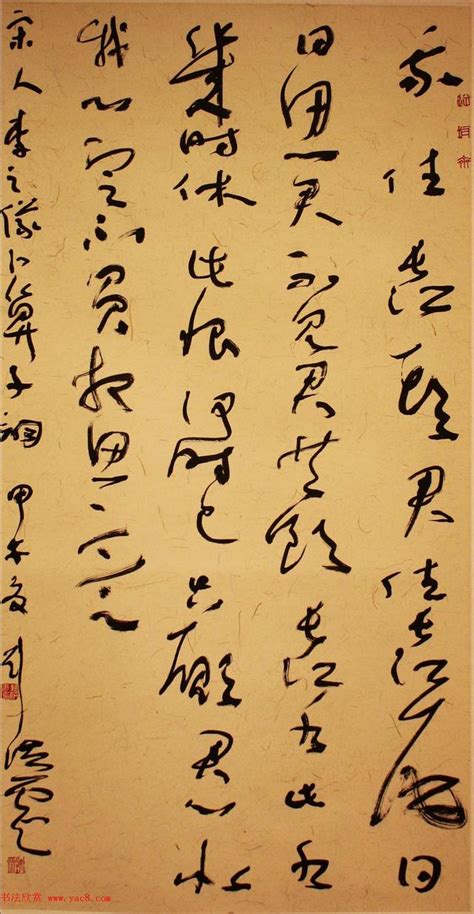 我住長江頭君住長江尾日
日思君不見君共飲長江水此水
幾时休此恨何时已只願君心似
我心定不負相思意
宋人李之儀卜算子詞 甲午夏
书法欣赏 www.yac8.com